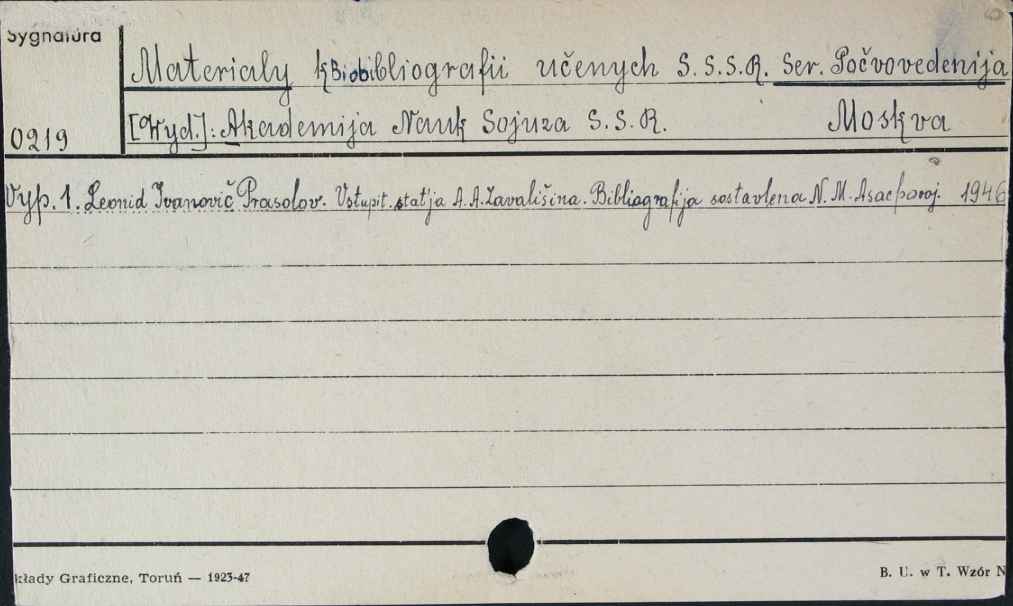 Sygnatura
Materialy k Biobibliografii učenych S.S.S.R. Ser. Počvovedenija
0219
[Wyd.]: Akademija Nauk Sojuza S.S.R. Moskva
Vyp. 1. Leonid Ivanovič Prasolov. Vstupit. stat'ja A. A. Zavališina. Bibliografija sostavlena N. M. Asacparoj. 1946
kłady Graficzne, Toruń — 1923-47
B. U. w T. Wzór N